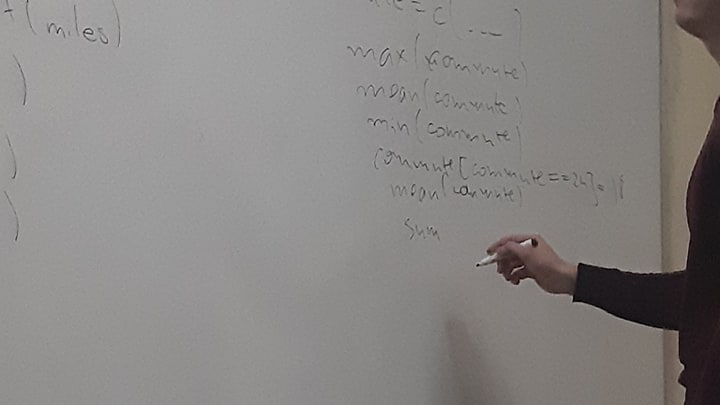 (miles)
)
)
)
= c(....)
max(commute)
mean(commute)
min(commute)
commute[commute==24]=18
mean(commute)
sum